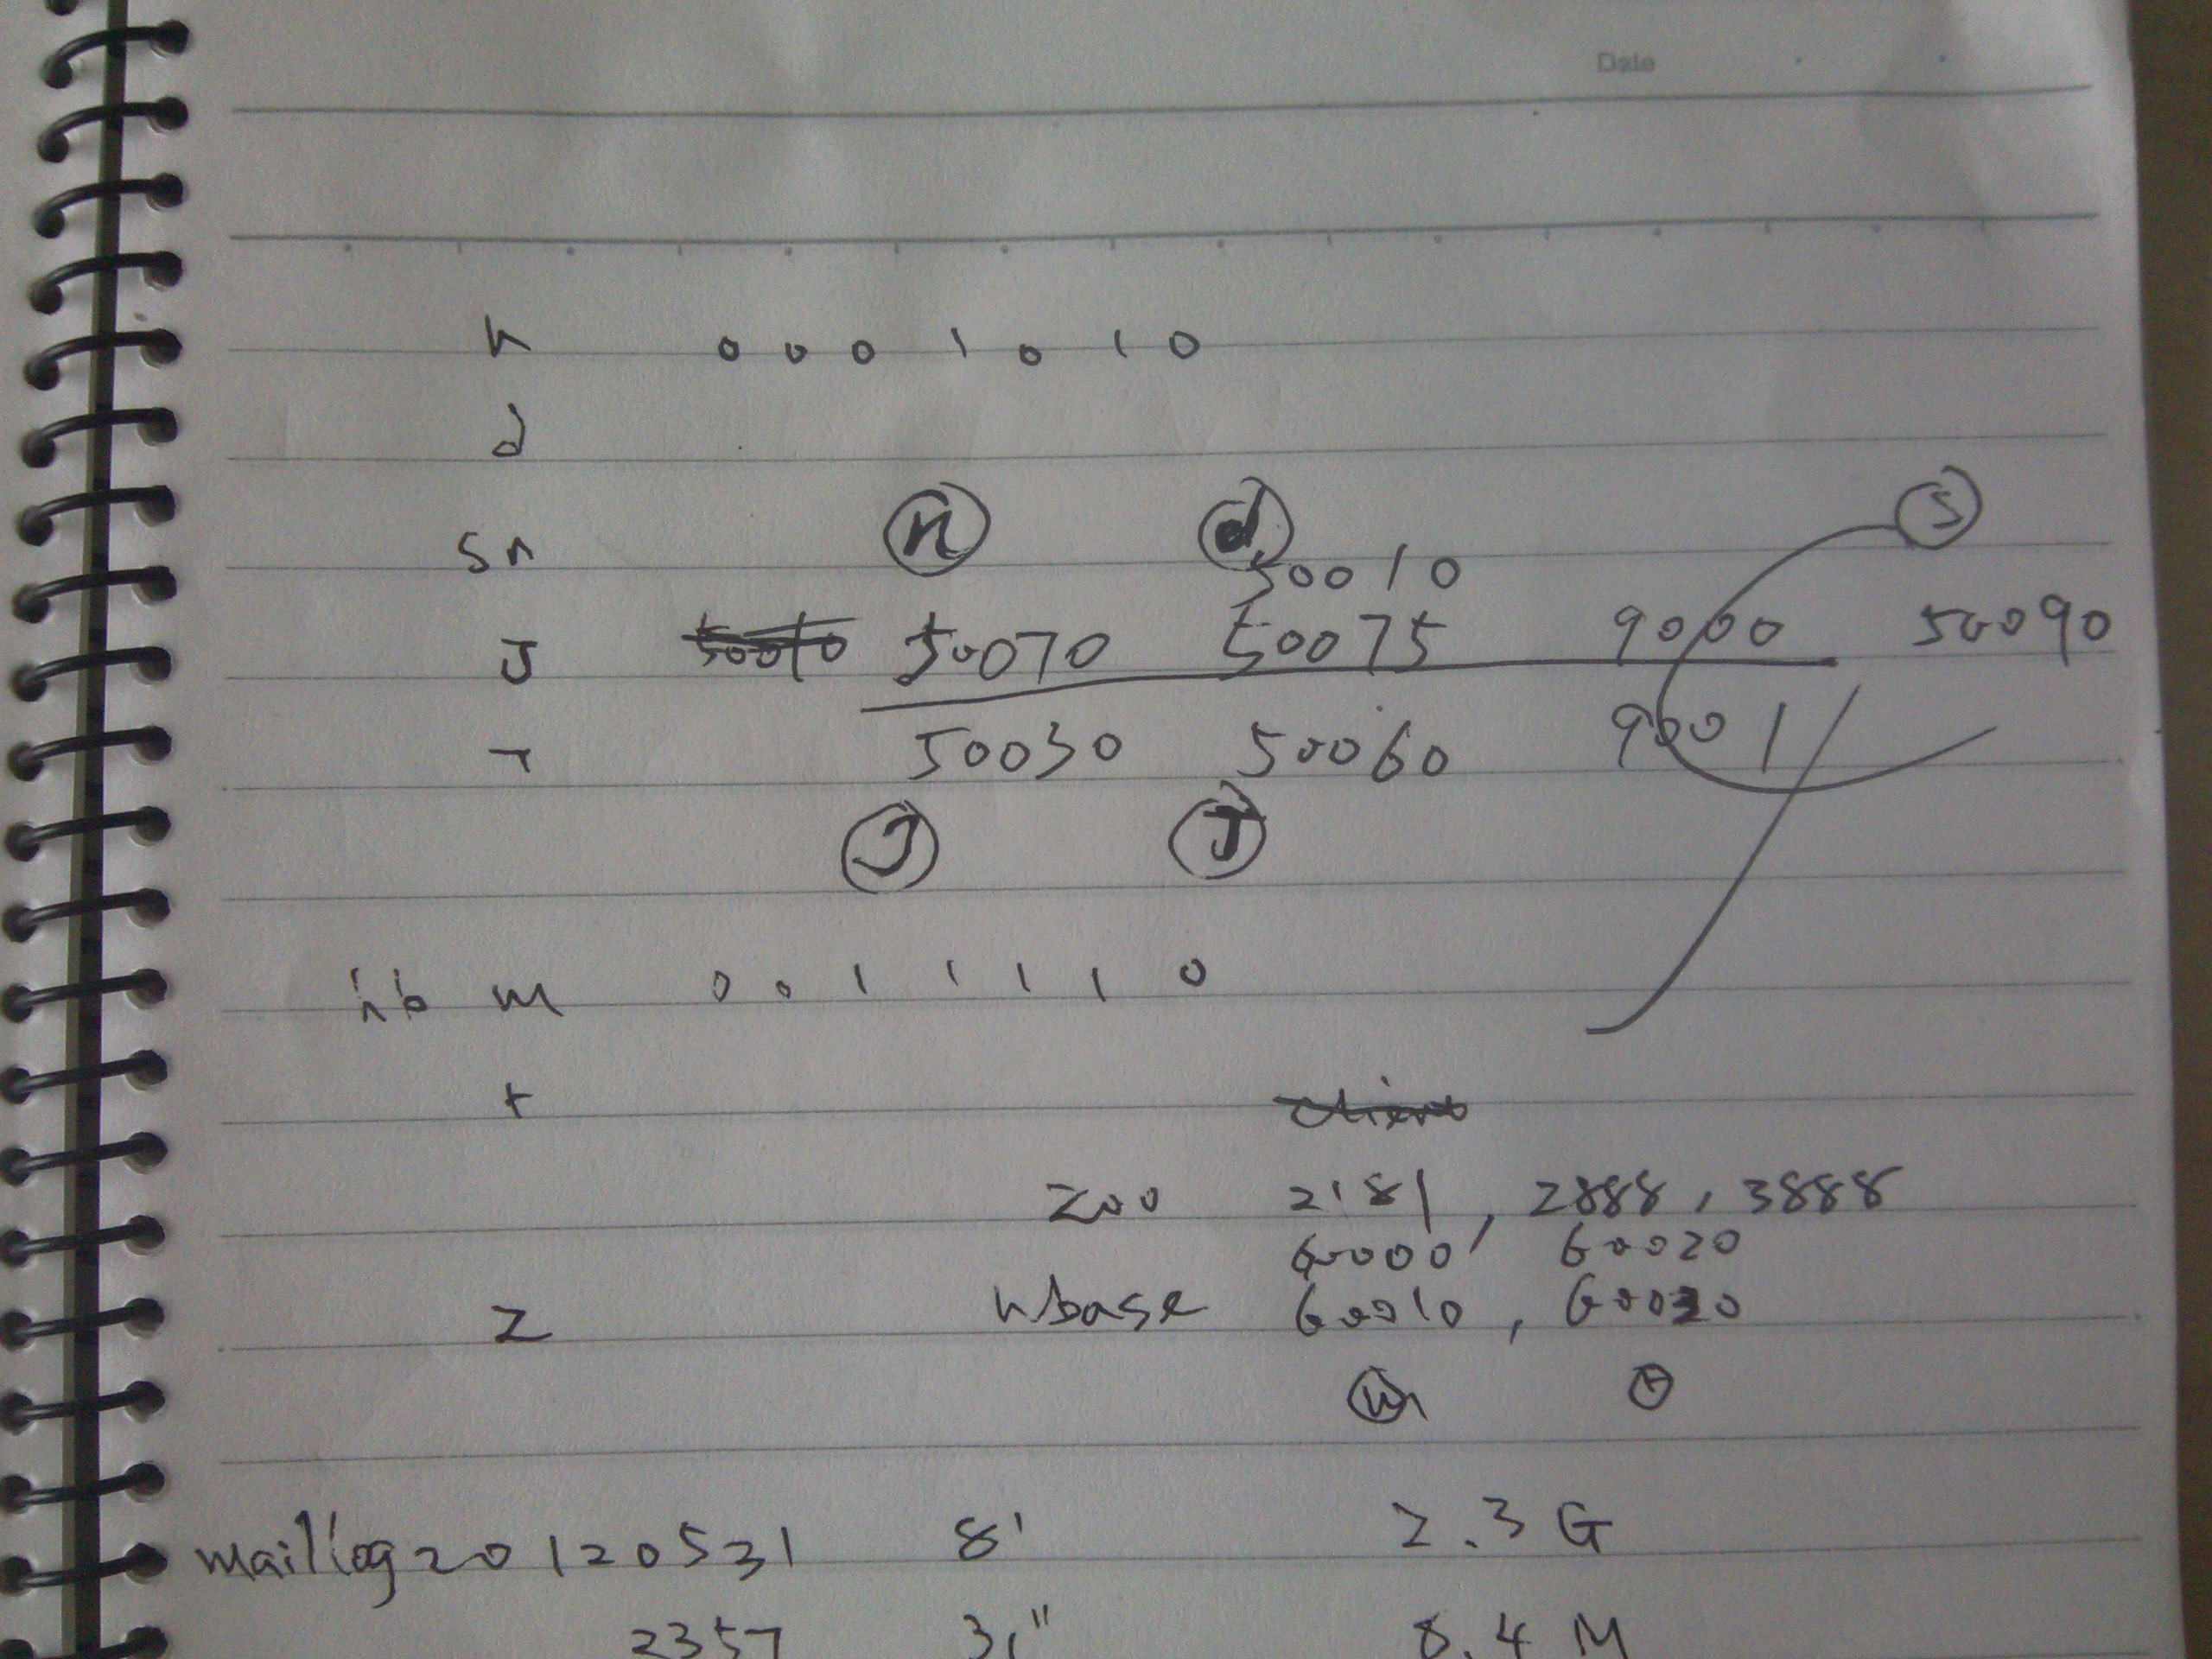 Date
n 0 0 0 1 0 1 0
d
sn n d S
50010
J 50070 50075 9000 50090
T 50030 50060 9001
J T
hb m 0 0 1 1 1 1 0
r
zoo 2181, 2888, 3888
60000, 60020
z hbase 60010, 60030
m r
maillog20120531 8' 2.3G
2357 31" 8.4M